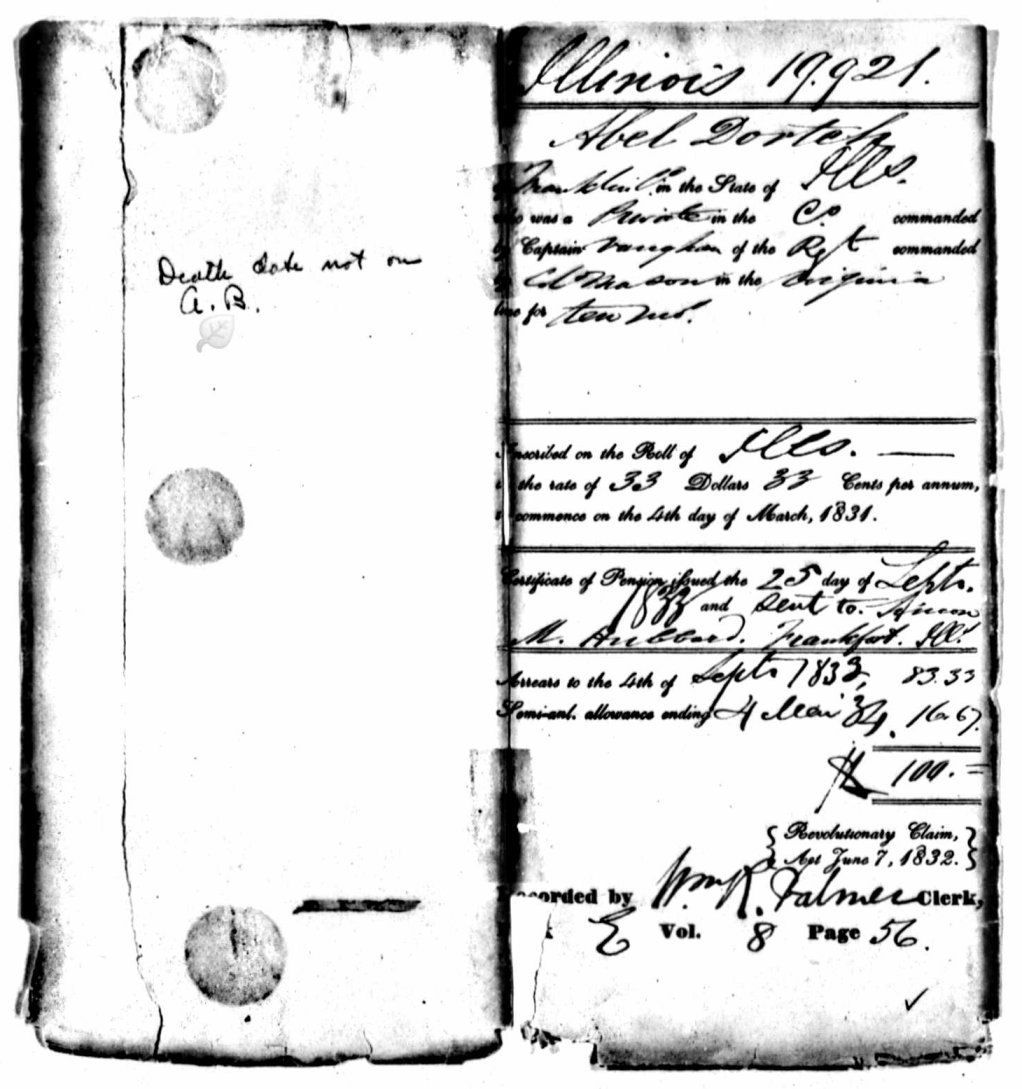 Death date not on
A. B.
Illinois 19.921.
Abel Dortch
Franklin Co. in the State of Ills.
who was a Private in the Co. commanded
by Captain Vaughan of the Rgt commanded
by Col Mason in the Virginia
line for ten mos.
Inscribed on the Roll of Ills. —
at the rate of 33 Dollars 33 Cents per annum,
to commence on the 4th day of March, 1831.
Certificate of Pension issued the 25 day of Septr.
1833 and sent to. Simon
M. Hubbard. Frankfort. Ill.
Arrears to the 4th of Septr 1833, 83.33
Semi-anl. allowance ending 4 Mar 34. 16.67
$ 100. =
{ Revolutionary Claim, }
{ Act June 7, 1832. }
Recorded by Wm R. Palmer Clerk,
E Vol. 8 Page 56.